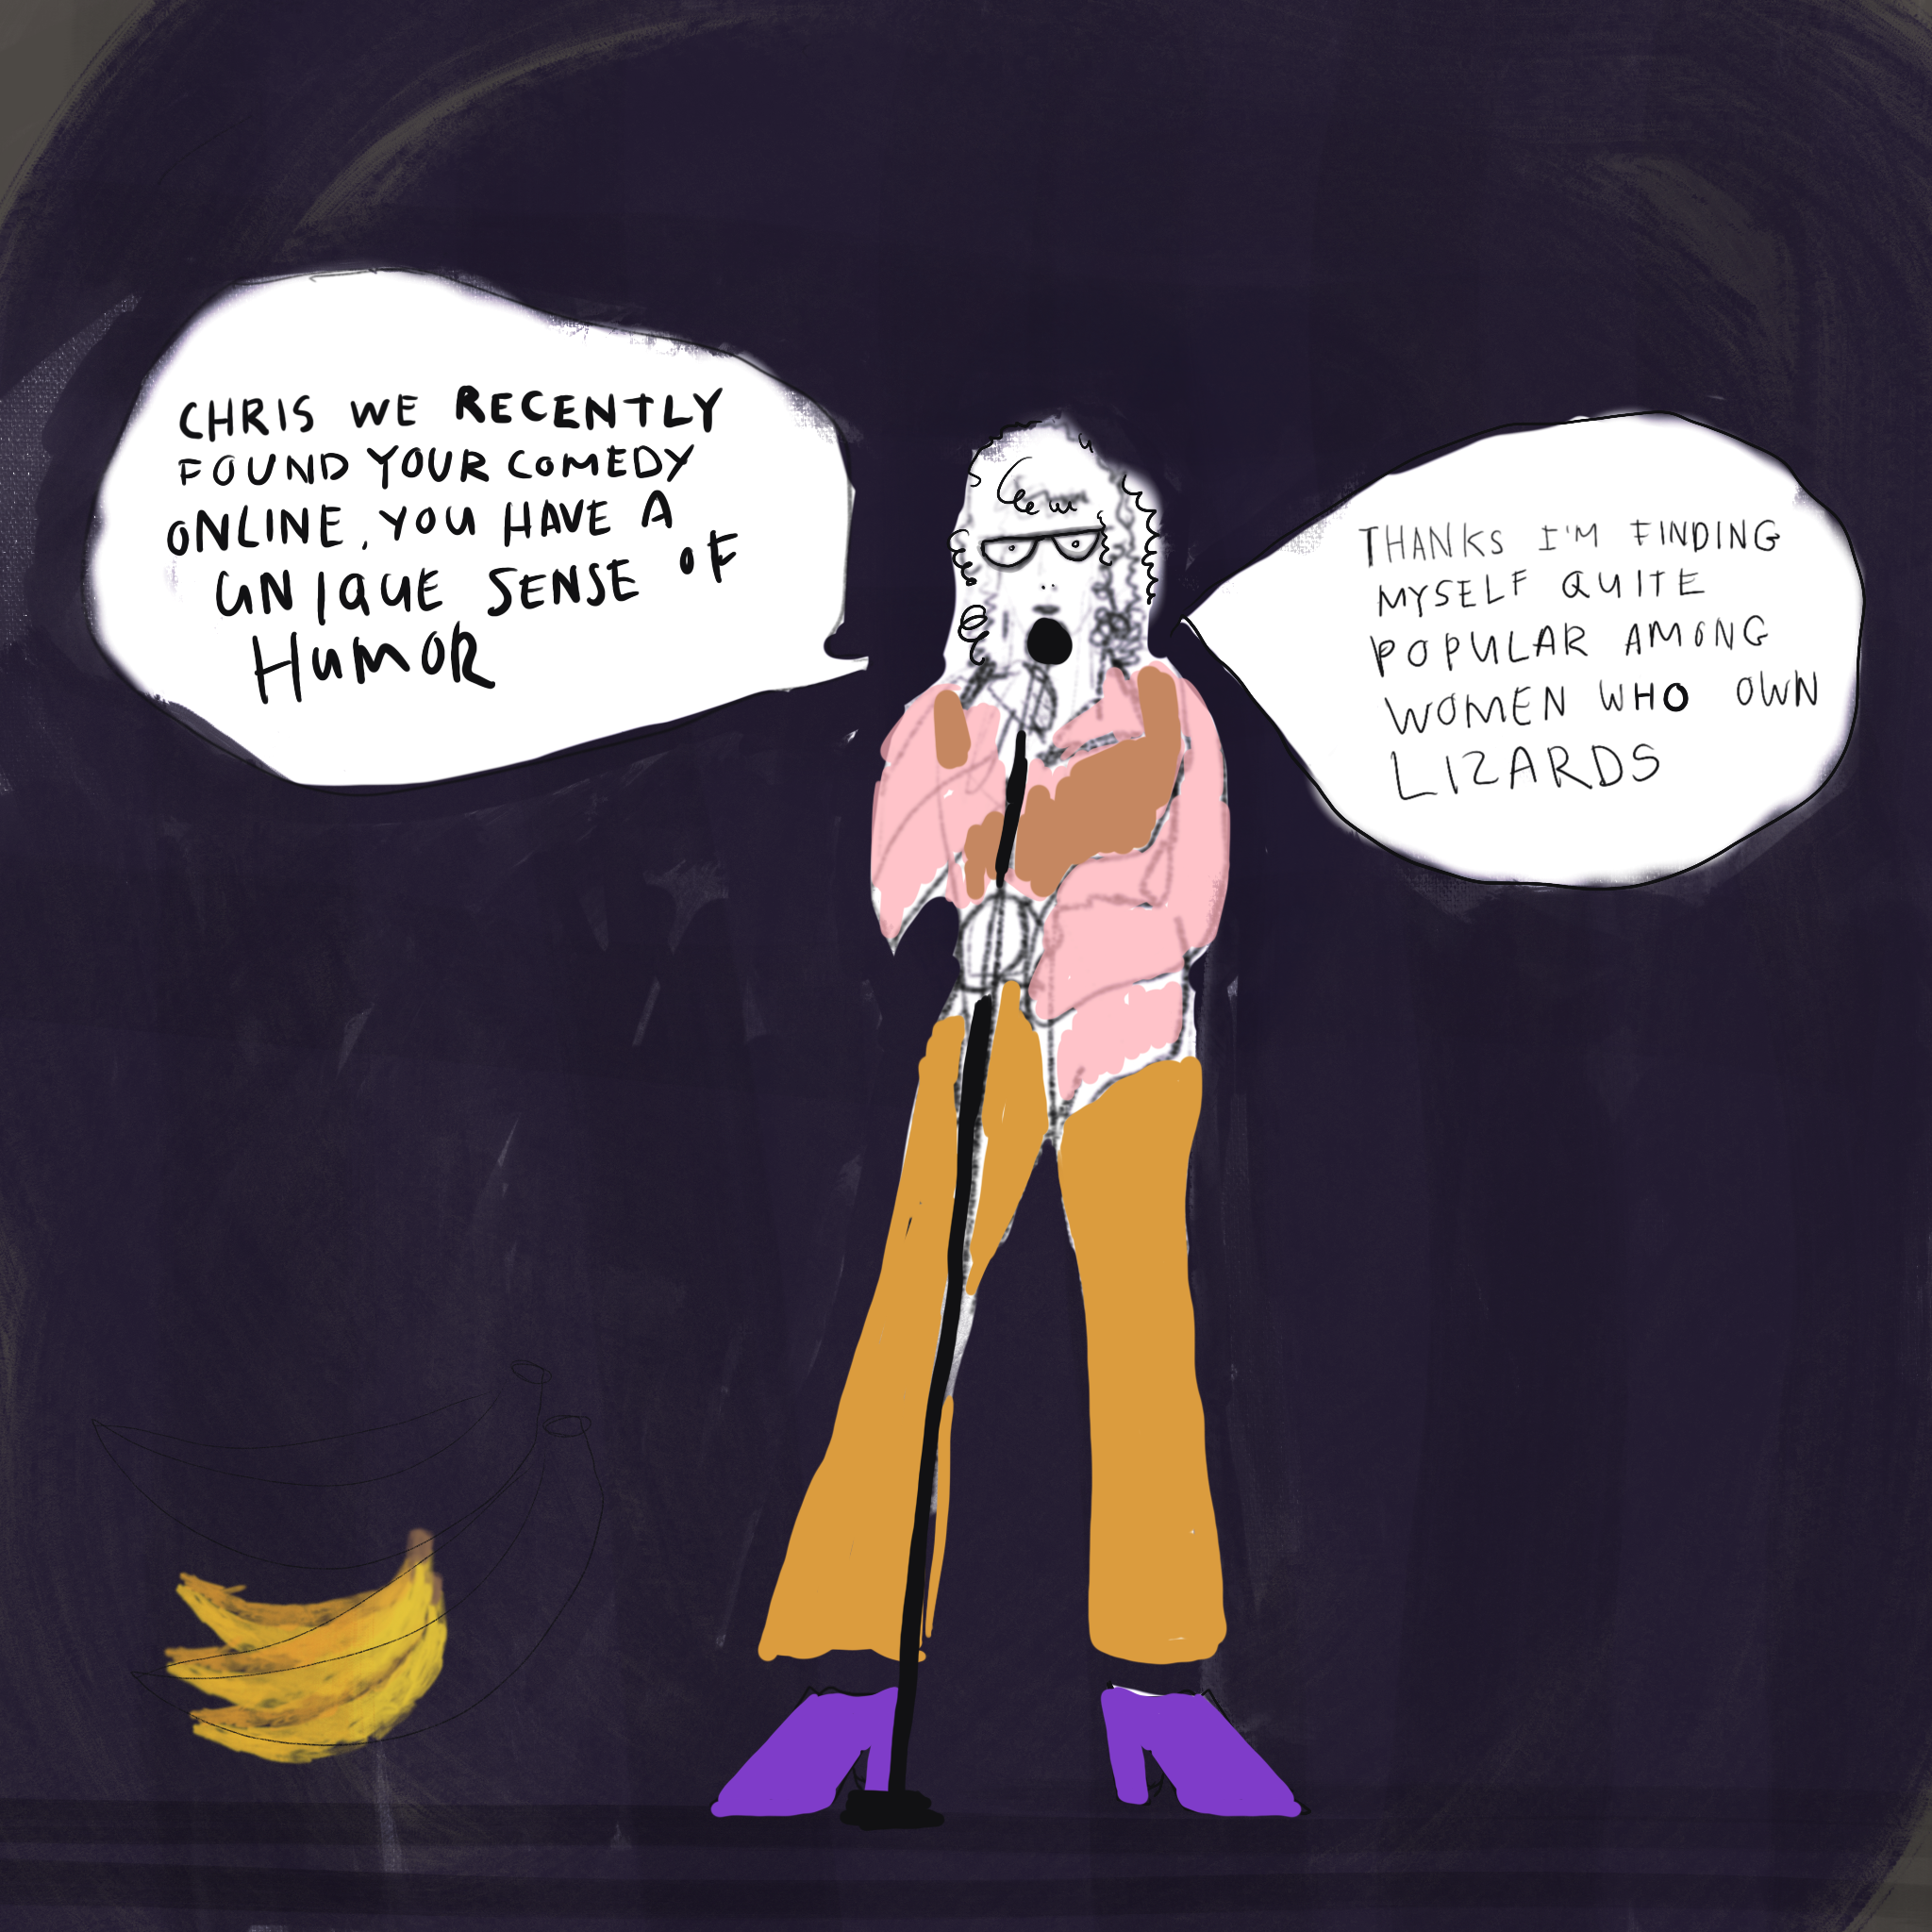 CHRIS WE RECENTLY
FOUND YOUR COMEDY
ONLINE, YOU HAVE A
UNIQUE SENSE OF
HUMOR
THANKS I'M FINDING
MYSELF QUITE
POPULAR AMONG
WOMEN WHO OWN
LIZARDS